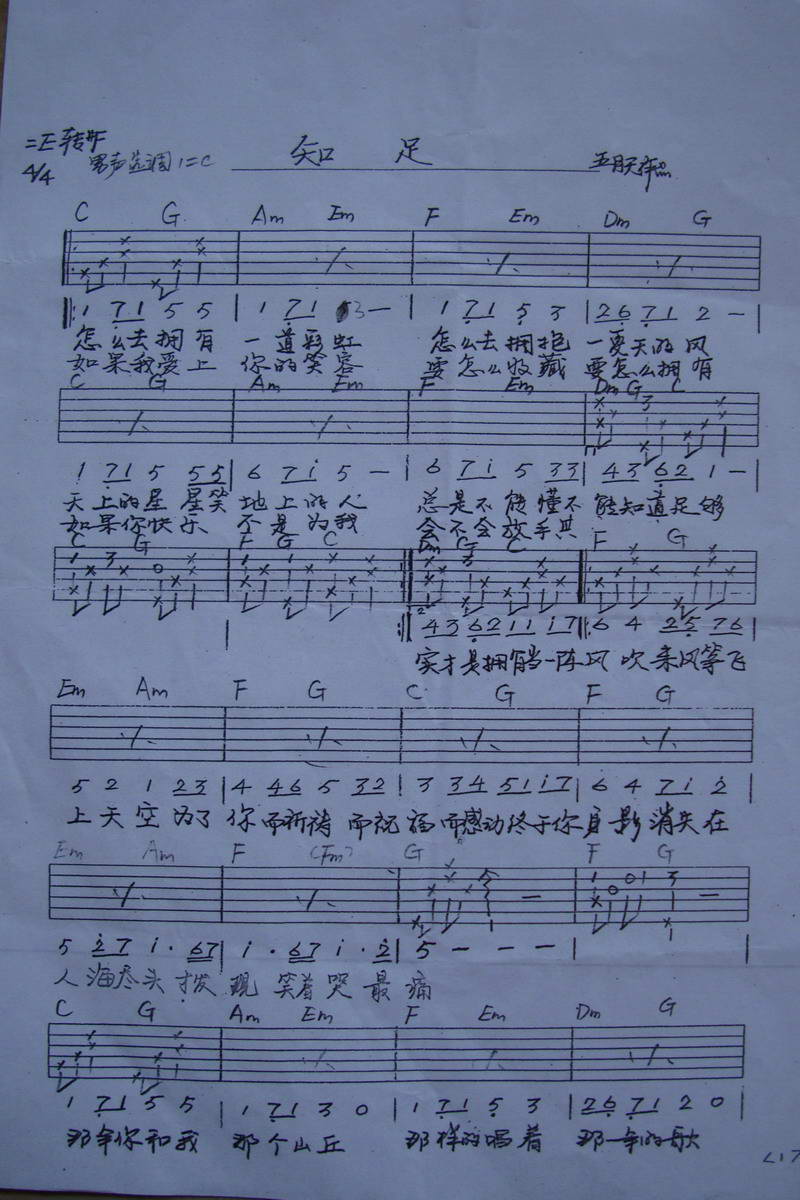 知 足
4/4 男声选调1=C
C G Am Em F Em Dm G
1 71 5 5 | 1 71 3 — | 1 71 5 3 | 26 71 2 — |
怎么去拥有 一道彩虹 怎么去拥抱 一夏天的风
如果我爱上 你的笑容 要怎么收藏 要怎么拥有
C G Am Em F Em Dm G C
1 71 5 55 | 6 71 5 — | 6 71 5 33 | 43 62 1 — |
天上的星星笑 地上的人 总是不能懂不 能知道足够
如果你快乐 不是为我 会不会放手其
C G F G C Dm G C F G
43 62 11 17 6 4 25 76
实才是拥有当一阵风 吹来风筝飞
Em Am F G C G F G
5 2 1 23 | 4 46 5 32 | 3 34 51 17 | 6 4 71 2
上天空为了 你而祈祷而祝福而感动终于你身影消失在
Em Am F (Fm) G F G
5 27 1· 67 | 1· 67 1· 2 | 5 — — — |
人海尽头才发现 笑着哭最痛
C G Am Em F Em Dm G
1 71 5 5 | 1 71 3 0 | 1 71 5 3 | 26 71 2 0
那年你和我 那个山丘 那样的唱着 那一年的歌